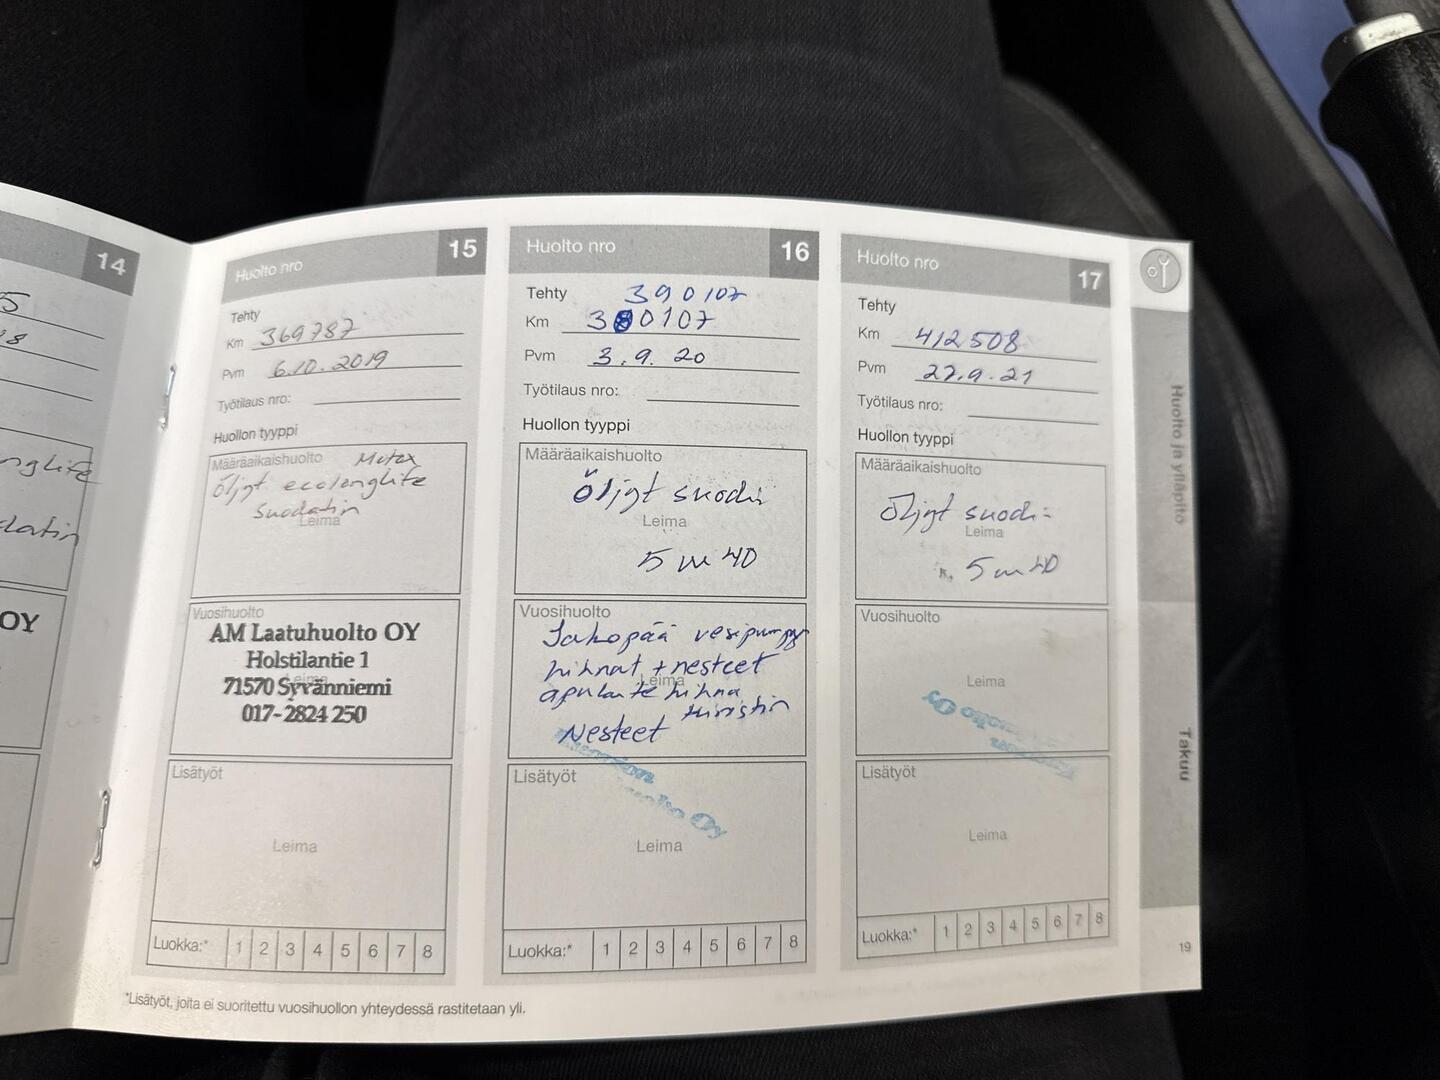 14
15
Huolto nro
Tehty
Km 369787
Pvm 6.10.2019
Työtilaus nro:
Huollon tyyppi
Määräaikaishuolto Motox
Öljyt ecolenglife
Suodatin
Leima
Vuosihuolto
AM Laatuhuolto OY
Holstilantie 1
Leima
71570 Syvänniemi
017-2824 250
Lisätyöt
Leima
Luokka:* 1 2 3 4 5 6 7 8
Huolto nro 16
Tehty 390107
Km 380107
Pvm 3.9.20
Työtilaus nro:
Huollon tyyppi
Määräaikaishuolto
Öljyt suodi
Leima
5 w 40
Vuosihuolto
Jakopää vesipumppu
hihnat + nesteet
Leima
apulaite hihna
kiristin
Nesteet
Oy
Lisätyöt
Leima
Luokka:* 1 2 3 4 5 6 7 8
Huolto nro 17
Tehty
Km 412508
Pvm 27.9.21
Työtilaus nro:
Huollon tyyppi
Määräaikaishuolto
Öljyt suodi-
Leima
5 w 40
Vuosihuolto
Leima
Oy
Lisätyöt
Leima
Luokka:* 1 2 3 4 5 6 7 8
Huolto ja ylläpito
Takuu
19
*Lisätyöt, joita ei suoritettu vuosihuollon yhteydessä rastitetaan yli.